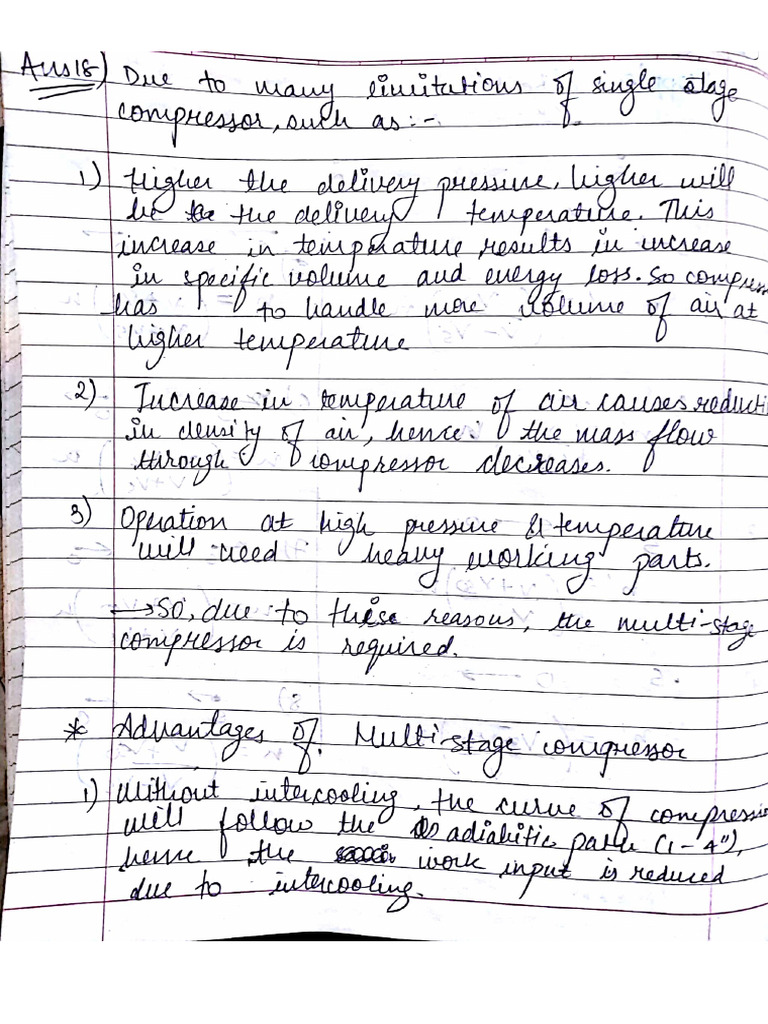 Ans18) Due to many limitations of single stage
compressor, such as :-
1) Higher the delivery pressure, higher will
be the delivery temperature. This
increase in temperature results in increase
in specific volume and energy loss. So compress
has to handle more volume of air at
higher temperature
2) Increase in temperature of air causes reducti
in density of air, hence the mass flow
through compressor decreases.
3) Operation at high pressure & temperature
will need heavy working parts.
→ So, due to these reasons, the multi-stage
compressor is required.
* Advantages of Multi-stage compressor
1) Without intercooling, the curve of compressio
will follow the adiabitic path (1-4"),
hence the work input is reduced
due to intercooling.